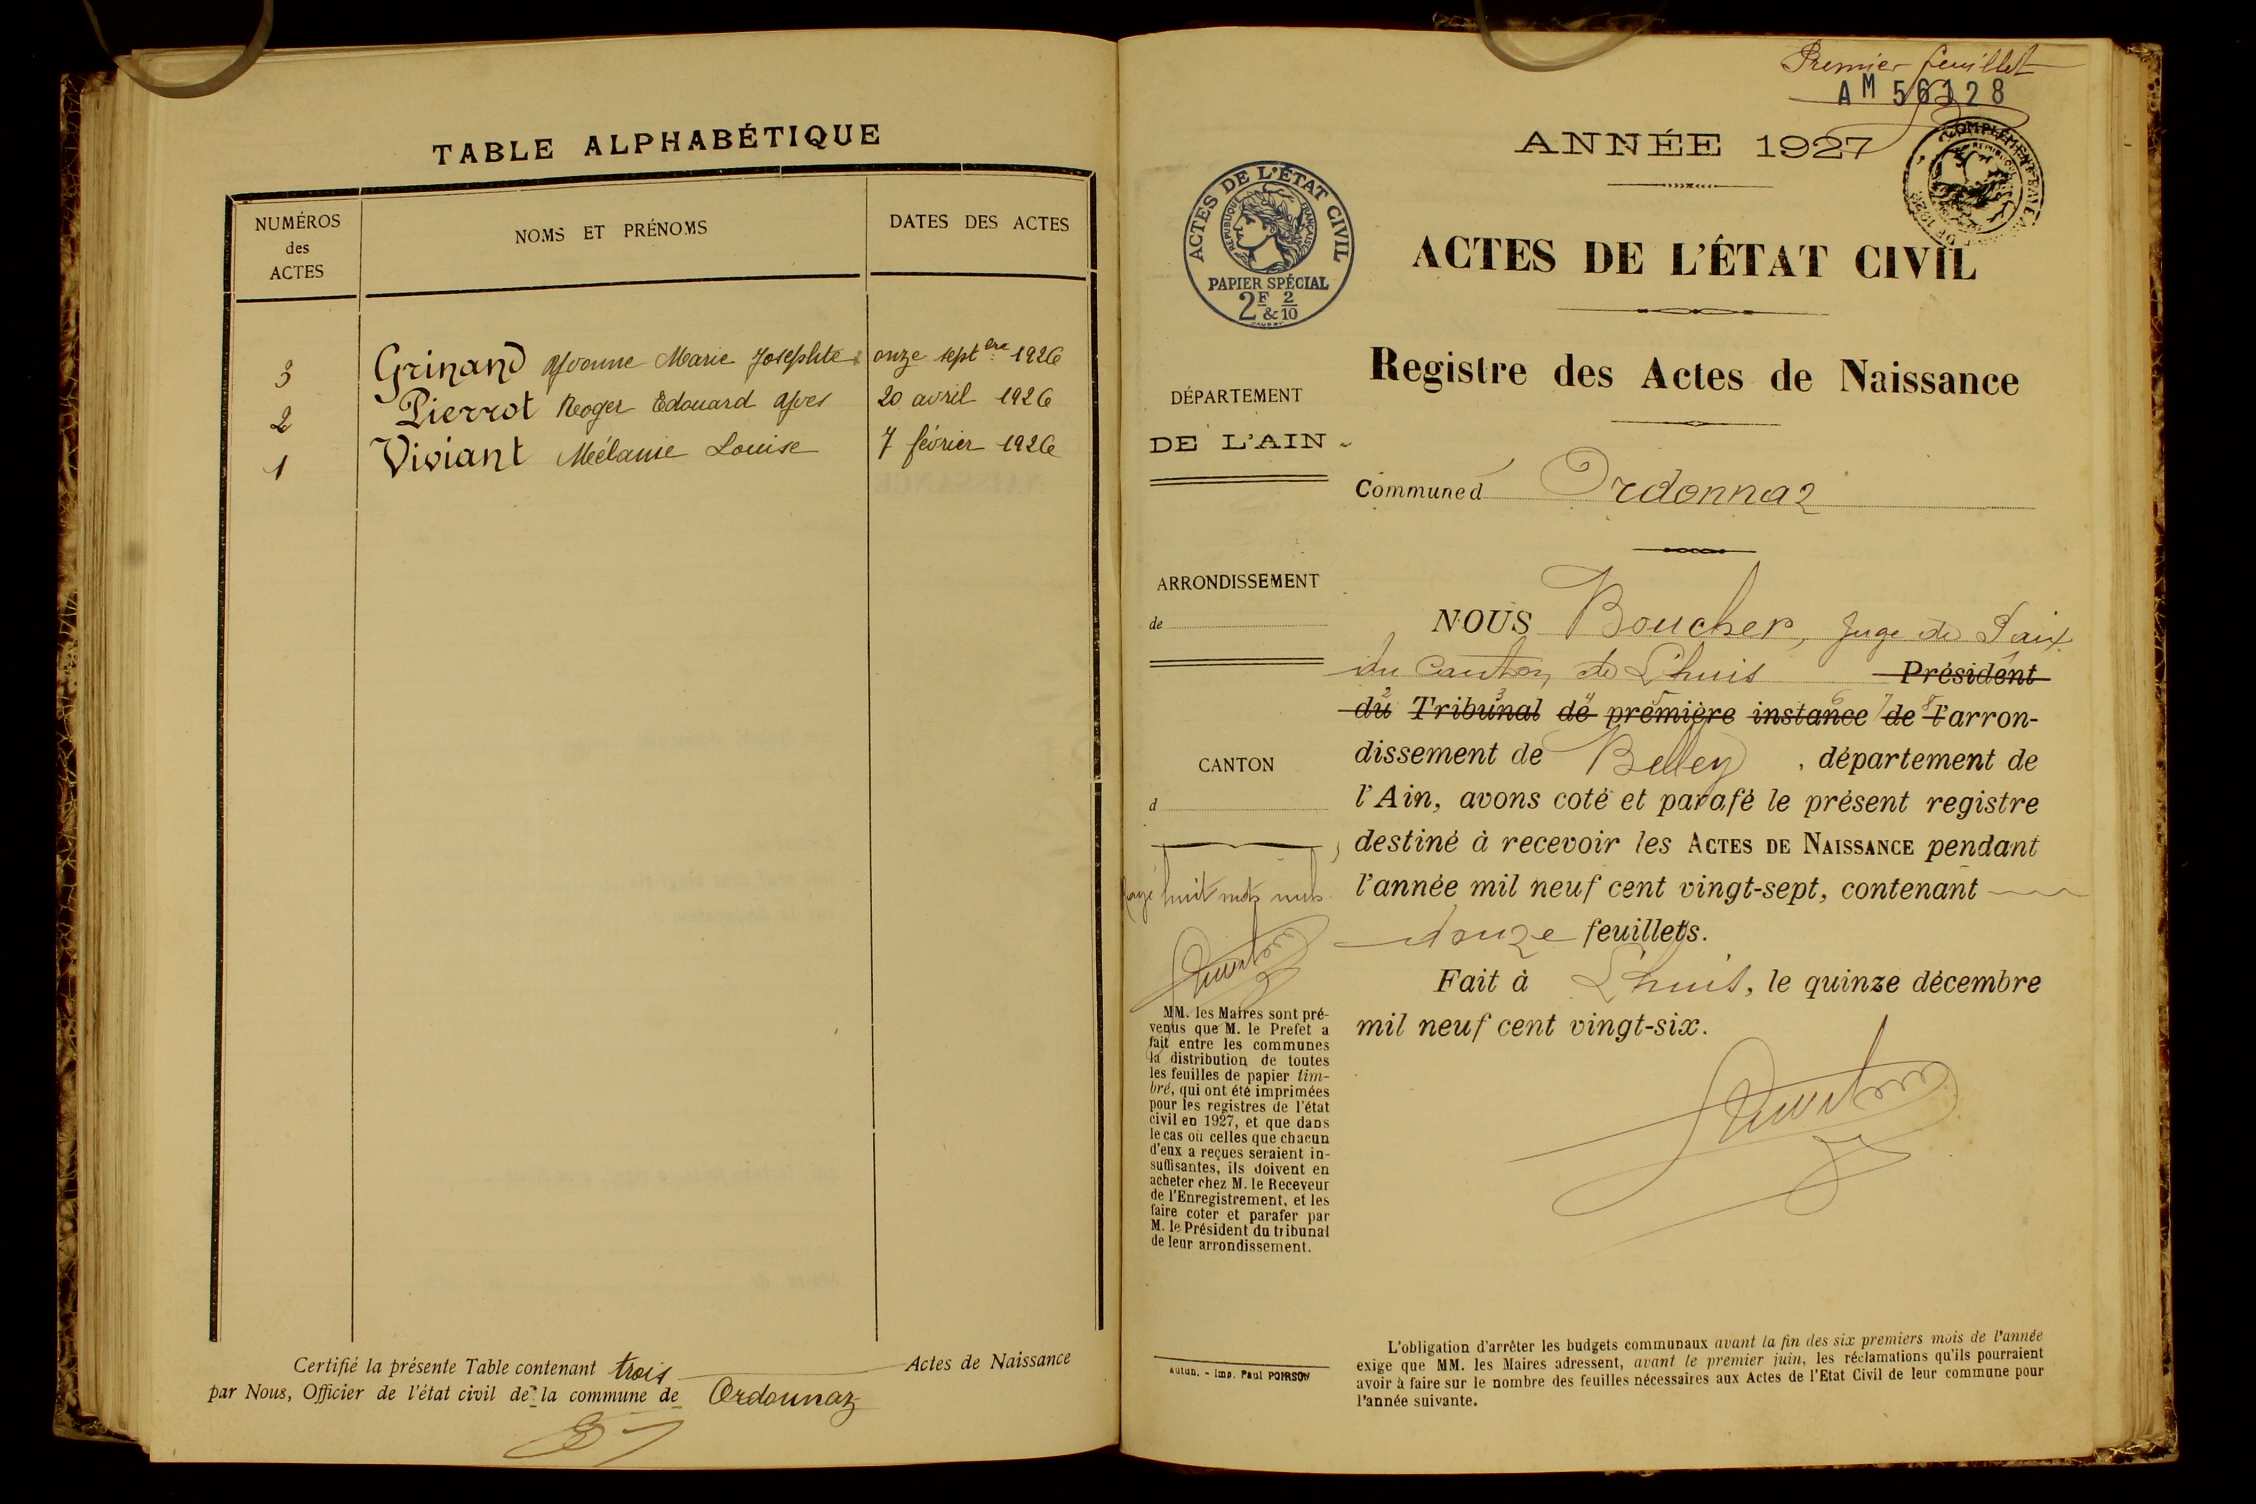 TABLE ALPHABÉTIQUE
NUMÉROS
des
ACTES
NOMS ET PRÉNOMS
DATES DES ACTES
3 Grinand Yvonne Marie Josephte onze sept bre 1926
2 Pierrot Roger Edouard Yves 20 avril 1926
1 Viviant Mélanie Louise 7 février 1926
Certifié la présente Table contenant trois Actes de Naissance
par Nous, Officier de l'état civil de la commune de Ordonnaz
Premier feuillet
AM 56128
ANNÉE 1927
ACTES DE L'ÉTAT CIVIL
RÉPUBLIQUE FRANÇAISE
PAPIER SPÉCIAL
2F & 2/10
ACTES DE L'ÉTAT CIVIL
Registre des Actes de Naissance
DÉPARTEMENT
DE L'AIN
Commune d Ordonnaz
ARRONDISSEMENT
de
CANTON
d
Rayé huit mots nuls
NOUS Boucher, Juge de Paix
du Canton de Lhuis Président
du Tribunal de première instance de l'arron-
dissement de Belley, département de
l'Ain, avons coté et parafé le présent registre
destiné à recevoir les ACTES DE NAISSANCE pendant
l'année mil neuf cent vingt-sept, contenant
douze feuillets.
Fait à Lhuis, le quinze décembre
mil neuf cent vingt-six.
MM. les Maires sont pré-
venus que M. le Prefet a
fait entre les communes
la distribution de toutes
les feuilles de papier tim-
bré, qui ont été imprimées
pour les registres de l'état
civil en 1927, et que dans
le cas où celles que chacun
d'eux a reçues seraient in-
suffisantes, ils doivent en
acheter chez M. le Receveur
de l'Enregistrement, et les
faire coter et parafer par
M. le Président du tribunal
de leur arrondissement.
Autun. - Imp. Paul POIRSON
L'obligation d'arrêter les budgets communaux avant la fin des six premiers mois de l'année
exige que MM. les Maires adressent, avant le premier juin, les réclamations qu'ils pourraient
avoir à faire sur le nombre des feuilles nécessaires aux Actes de l'Etat Civil de leur commune pour
l'année suivante.